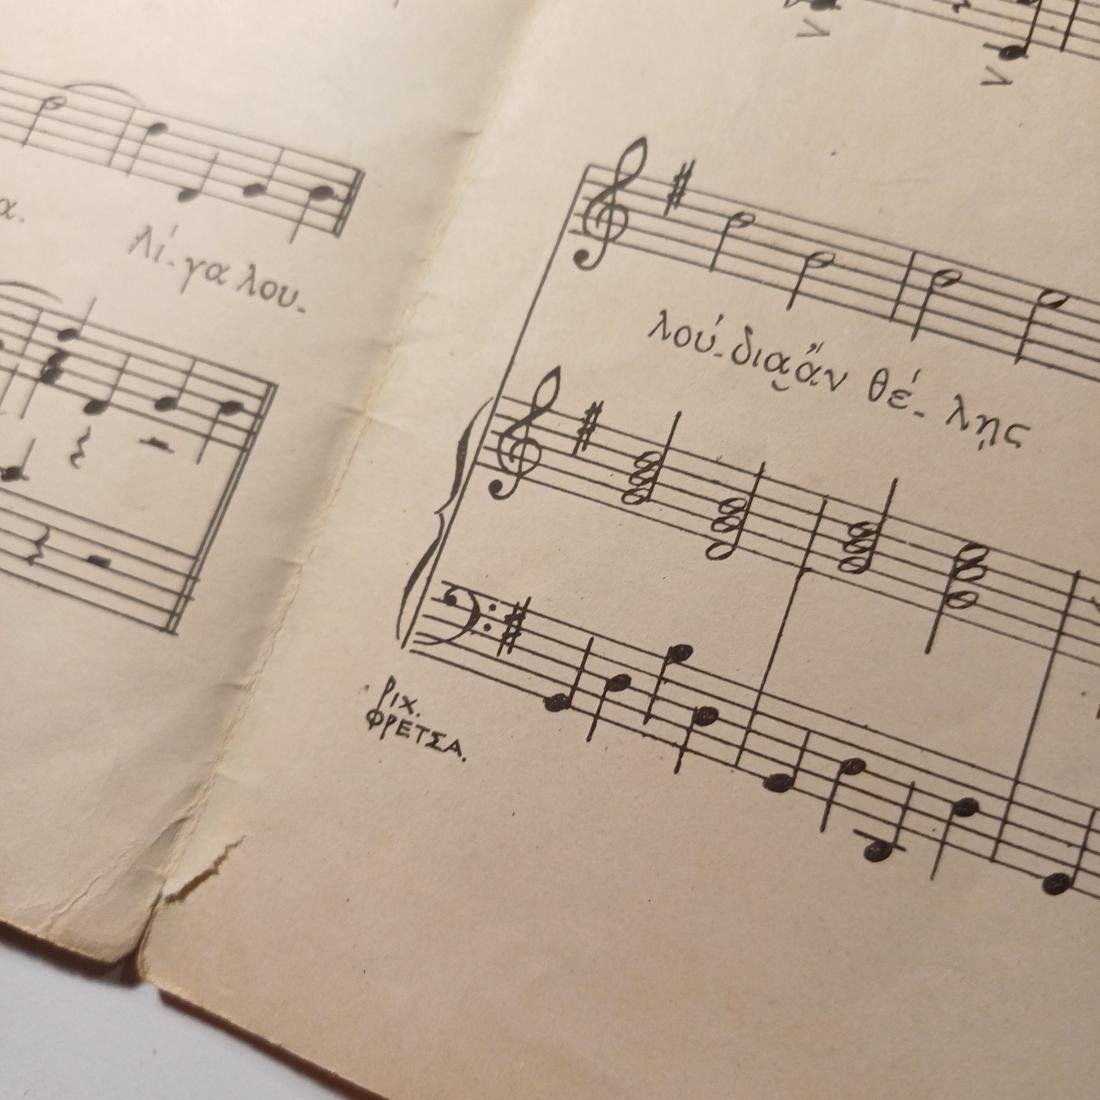 α.
λί-γα λου-
λού-δια ἄν θέ-λῃς
ΡΙΧ.
ΦΡΕΤΣΑ.